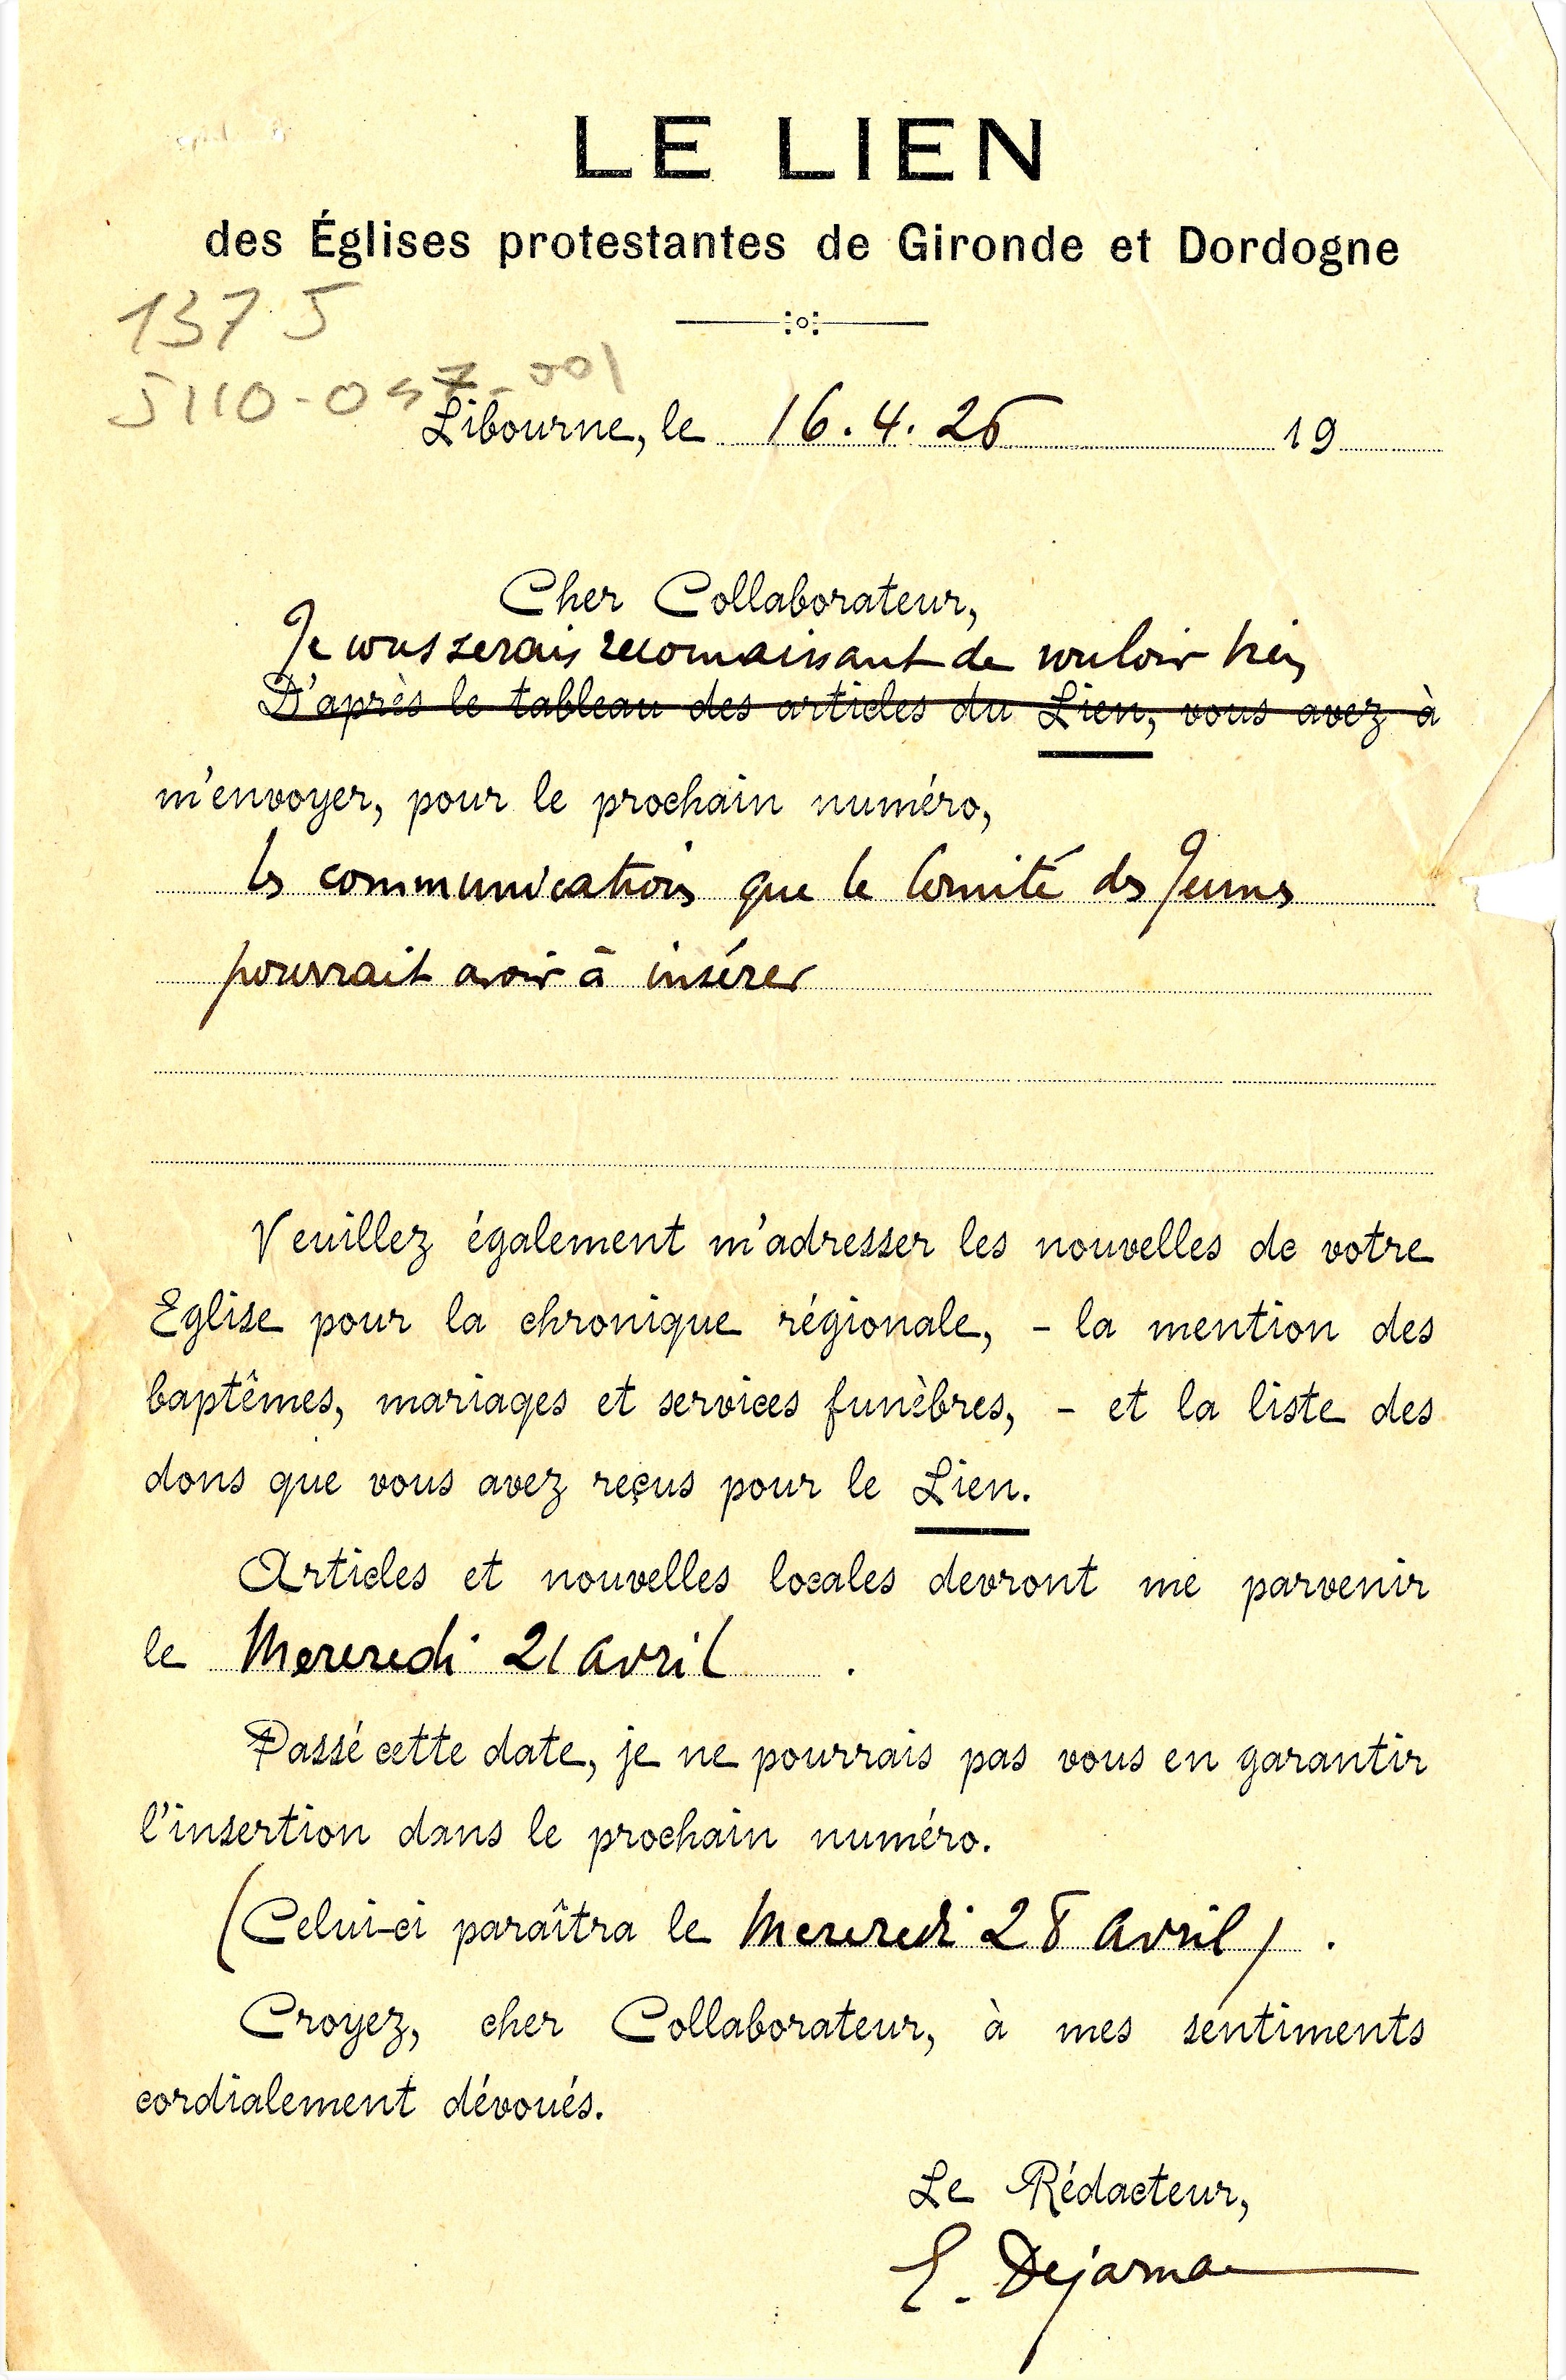 LE LIEN
des Églises protestantes de Gironde et Dordogne
137 J
J110-047-001
Libourne, le 16.4.26 19
Cher Collaborateur,
Je vous serais reconnaissant de vouloir bien
D'après le tableau des articles du Lien, vous avez à
m'envoyer, pour le prochain numéro,
les communications que le Comité des Jeunes
pourrait avoir à insérer
Veuillez également m'adresser les nouvelles de votre
Eglise pour la chronique régionale, - la mention des
baptêmes, mariages et services funèbres, - et la liste des
dons que vous avez reçus pour le Lien.
Articles et nouvelles locales devront me parvenir
le Mercredi 21 avril .
Passé cette date, je ne pourrais pas vous en garantir
l'insertion dans le prochain numéro.
(Celui-ci paraîtra le Mercredi 28 avril) .
Croyez, cher Collaborateur, à mes sentiments
cordialement dévoués.
Le Rédacteur,
E. Dejarna